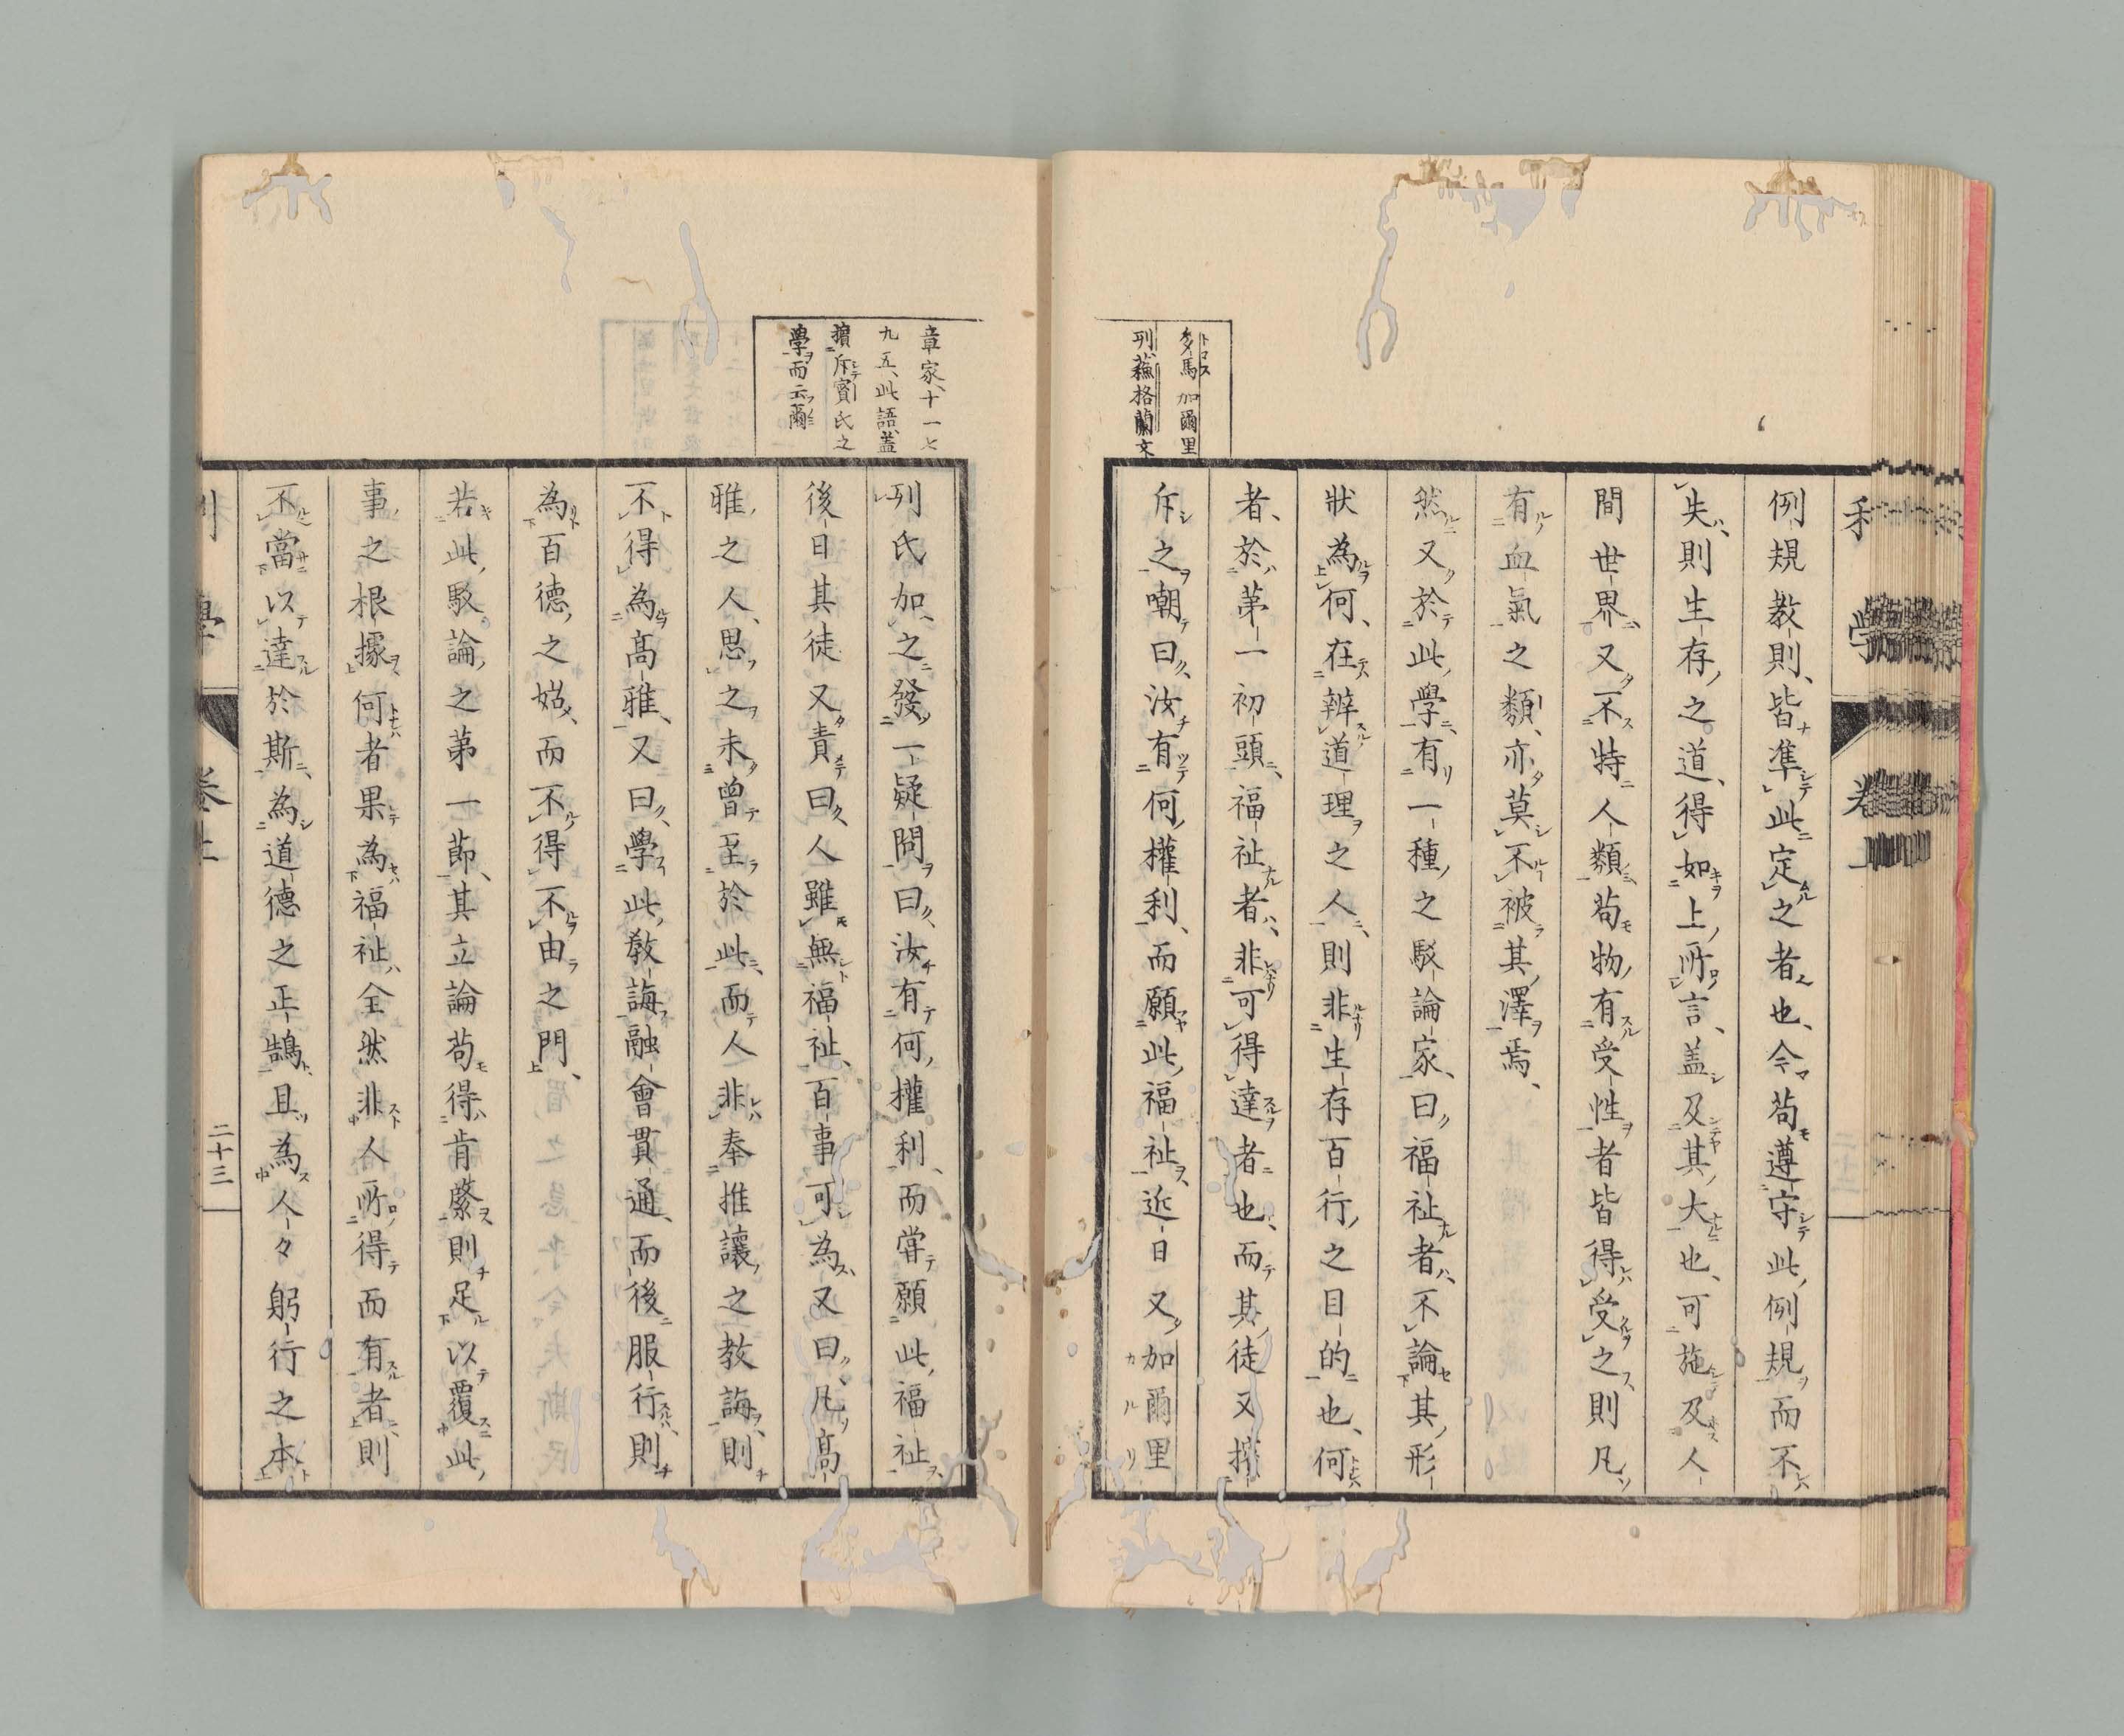 多馬加爾里
列蘓格蘭文
例規教則、皆準此定之者也、今苟遵守此例規而不
失則生存之道、得如上所言、盖及其大也、可施及人
間世界又不特人類苟物有受性者皆得受之則凡
有血氣之類、亦莫不被其澤焉、
然又於此學有一種之駁論家、曰福祉者、不論其形
狀為何、在辨道理之人、則非生存百行之目的也、何
者、於第一初頭、福祉者、非可得達者也、而其徒又擯
斥之嘲曰、汝有何權利、而願此福祉近日又加爾里
章家、十一七
九五、此語、蓋
擯斥賓氏之
學而云爾
列氏加之發一疑問曰、汝有何權利、而當願此福祉
後日其徒又責曰、人雖無福祉、百事可為又曰、凡高
雅之人、思之未曾至於此、而人非奉推讓之教誨、則
不得為高雅、又曰、學此教誨融會貫通、而後服行、則
為百德之始、而不得不由之門、
若此駁論之第一節、其立論苟得肯綮、則足以覆此
事之根據何者果為福祉全然非人所得而有者則
不當以達於斯、為道德之正鵠、且為人々躬行之本
利學
卷上
二十三